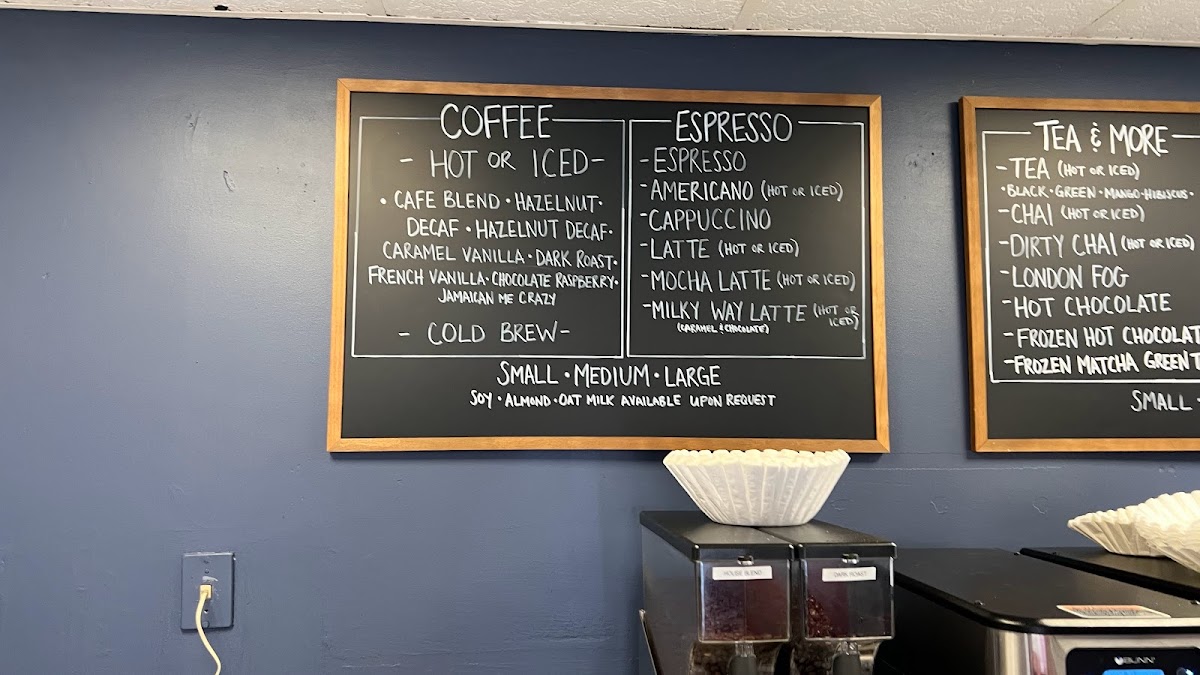 COFFEE
- HOT OR ICED-
• CAFE BLEND • HAZELNUT •
DECAF • HAZELNUT DECAF •
CARAMEL VANILLA • DARK ROAST •
FRENCH VANILLA • CHOCOLATE RASPBERRY •
JAMAICAN ME CRAZY
- COLD BREW-
ESPRESSO
-ESPRESSO
-AMERICANO (HOT OR ICED)
-CAPPUCCINO
-LATTE (HOT OR ICED)
-MOCHA LATTE (HOT OR ICED)
-MILKY WAY LATTE (HOT OR
ICED)
(CARAMEL & CHOCOLATE)
SMALL • MEDIUM • LARGE
SOY • ALMOND • OAT MILK AVAILABLE UPON REQUEST
TEA & MORE
-TEA (HOT OR ICED)
•BLACK • GREEN • MANGO-HIBISCUS •
-CHAI (HOT OR ICED)
-DIRTY CHAI (HOT OR ICED)
-LONDON FOG
-HOT CHOCOLATE
-FROZEN HOT CHOCOLAT
-FROZEN MATCHA GREEN T
SMALL •
HOUSE BLEND
DARK ROAST
BUNN